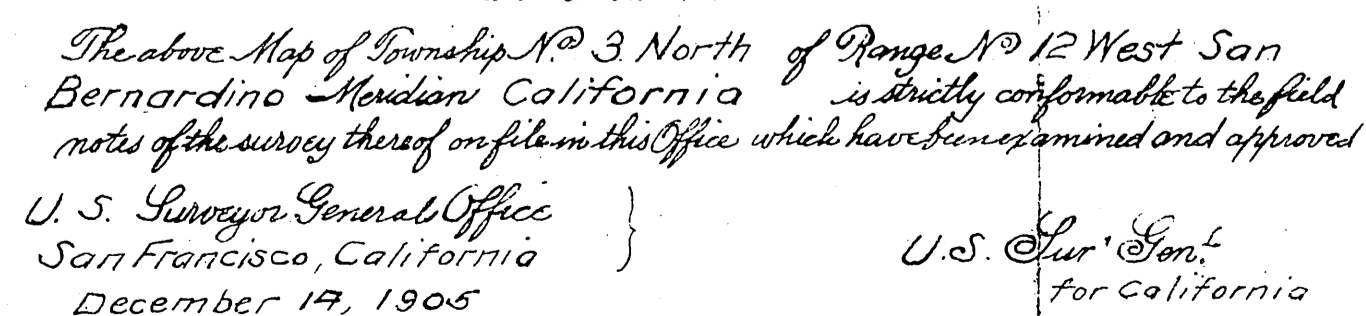 The above Map of Township No. 3 North of Range No 12 West San
Bernardino Meridian California is strictly conformable to the field
notes of the survey thereof on file in this Office which have been examined and approved
U. S. Surveyor General Office
San Francisco, California
December 14, 1905
U.S. Sur' Gen.l
for California